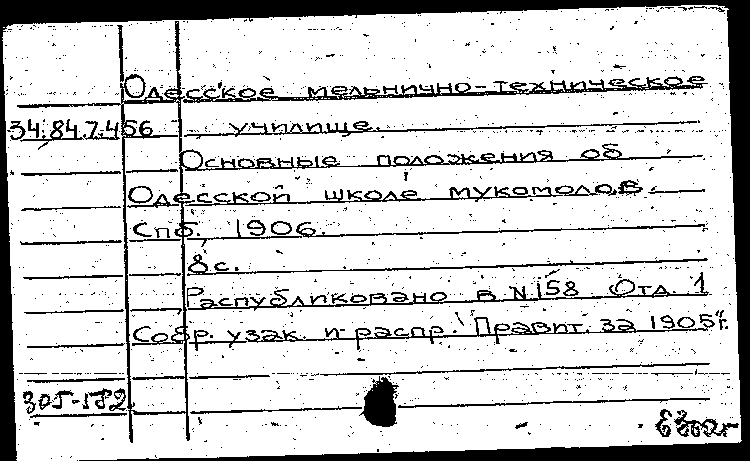 Одесское мельнично-техническое
34.84.7.456 училище.
Основные положения об
Одесской школе мукомолов.
Спб. 1906.
8 с.
Распубликовано в N 158 Отд. 1
Собр. узак. и распр. Правит. за 1905 г.
305-182